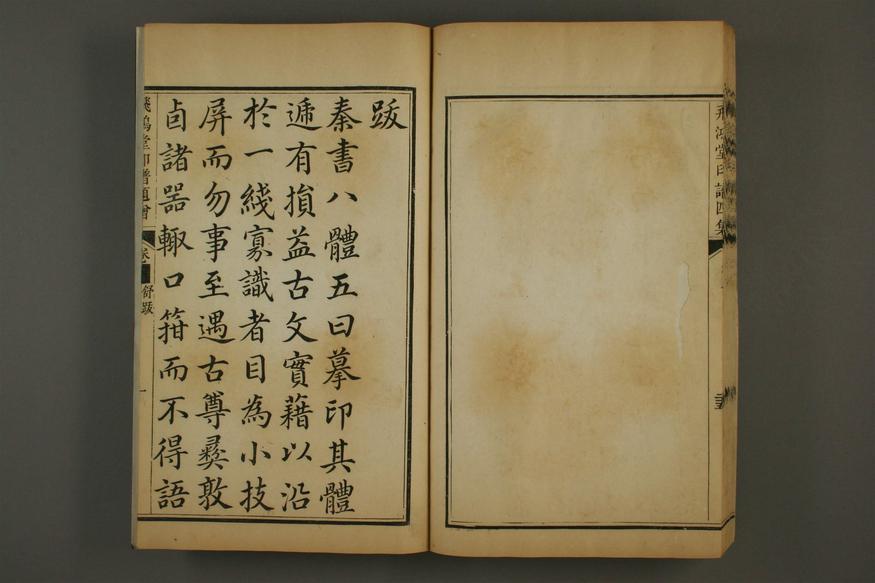 飛鴻堂印譜四集
跋
秦書八體五曰摹印其體
遞有損益古文實藉以沿
於一綫寡識者目為小技
屏而勿事至遇古尊彜敦
卣諸噐輙口箝而不得語
舒跋
一